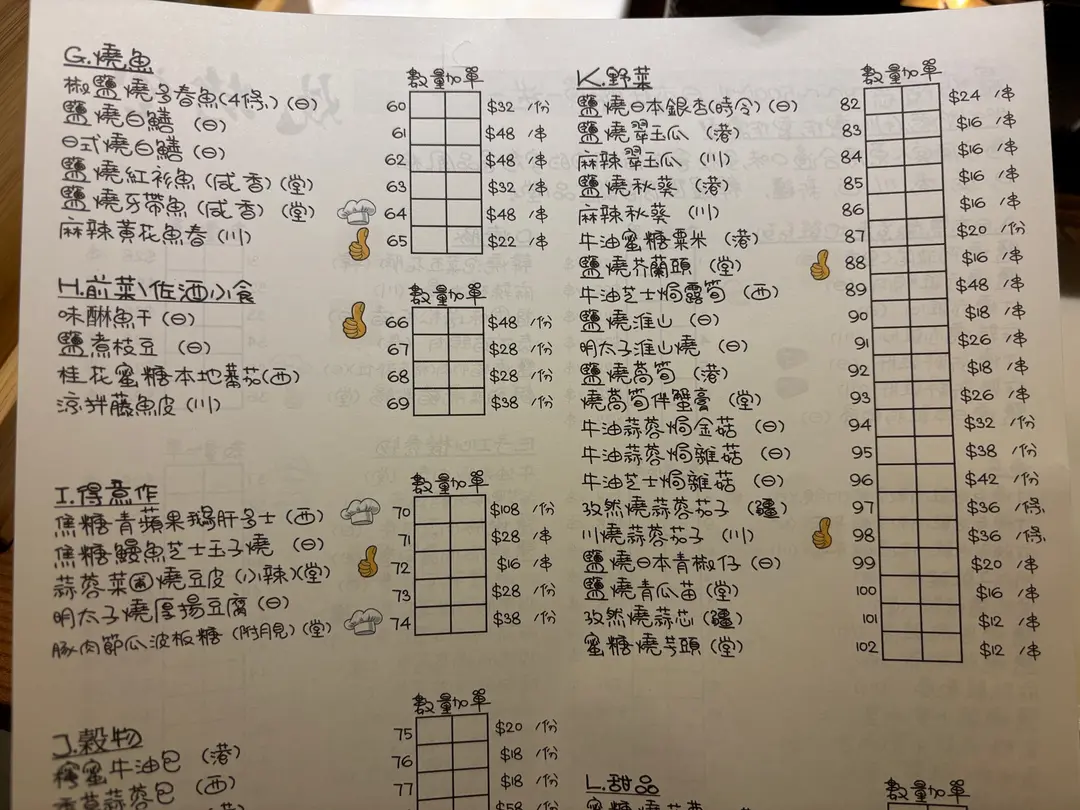 G.燒魚
數量 加單
椒鹽燒多春魚(4條) (日) 60 $32 /份
鹽燒白鱔 (日) 61 $48 /串
日式燒白鱔 (日) 62 $48 /串
鹽燒紅衫魚(咸香)(堂) 63 $32 /串
鹽燒牙帶魚(咸香)(堂) 64 $48 /串
麻辣黃花魚春(川) 65 $22 /串
H.前菜\佐酒小食
數量 加單
味醂魚干(日) 66 $48 /份
鹽煮枝豆 (日) 67 $28 /份
桂花蜜糖本地蕃茄(西) 68 $28 /份
涼拌藤魚皮(川) 69 $38 /份
I.得意作
數量 加單
焦糖青蘋果鵝肝多士(西) 70 $108 /份
焦糖鰻魚芝士玉子燒 (日) 71 $28 /串
蒜蓉菜圃燒豆皮(小辣)(堂) 72 $16 /串
明太子燒厚揚豆腐(日) 73 $28 /份
豚肉節瓜波板糖(附月見)(堂) 74 $38 /份
J.穀物
數量 加單
75 $20 /份
蜜牛油包 (港) 76 $18 /份
蒜蓉包 (西) 77 $18 /份
$58 /份
K.野菜
數量 加單
鹽燒日本銀杏(時令)(日) 82 $24 /串
鹽燒翠玉瓜 (港) 83 $16 /串
麻辣翠玉瓜 (川) 84 $16 /串
鹽燒秋葵(港) 85 $16 /串
麻辣秋葵 (川) 86 $16 /串
牛油蜜糖粟米 (港) 87 $20 /份
鹽燒芥蘭頭 (堂) 88 $16 /串
牛油芝士焗露筍 (西) 89 $48 /串
鹽燒淮山 (日) 90 $18 /串
明太子淮山燒 (日) 91 $26 /串
鹽燒萵筍 (港) 92 $18 /串
燒萵筍伴蟹膏 (堂) 93 $26 /串
牛油蒜蓉焗金菇 (日) 94 $32 /份
牛油蒜蓉焗雜菇 (日) 95 $38 /份
牛油芝士焗雜菇 (日) 96 $42 /份
孜然燒蒜蓉茄子 (疆) 97 $36 /條
川燒蒜蓉茄子 (川) 98 $36 /條
鹽燒日本青椒仔(日) 99 $20 /串
鹽燒青瓜苗(堂) 100 $16 /串
孜然燒蒜芯(疆) 101 $12 /串
蜜糖燒芋頭(堂) 102 $12 /串
L.甜品
數量 加單